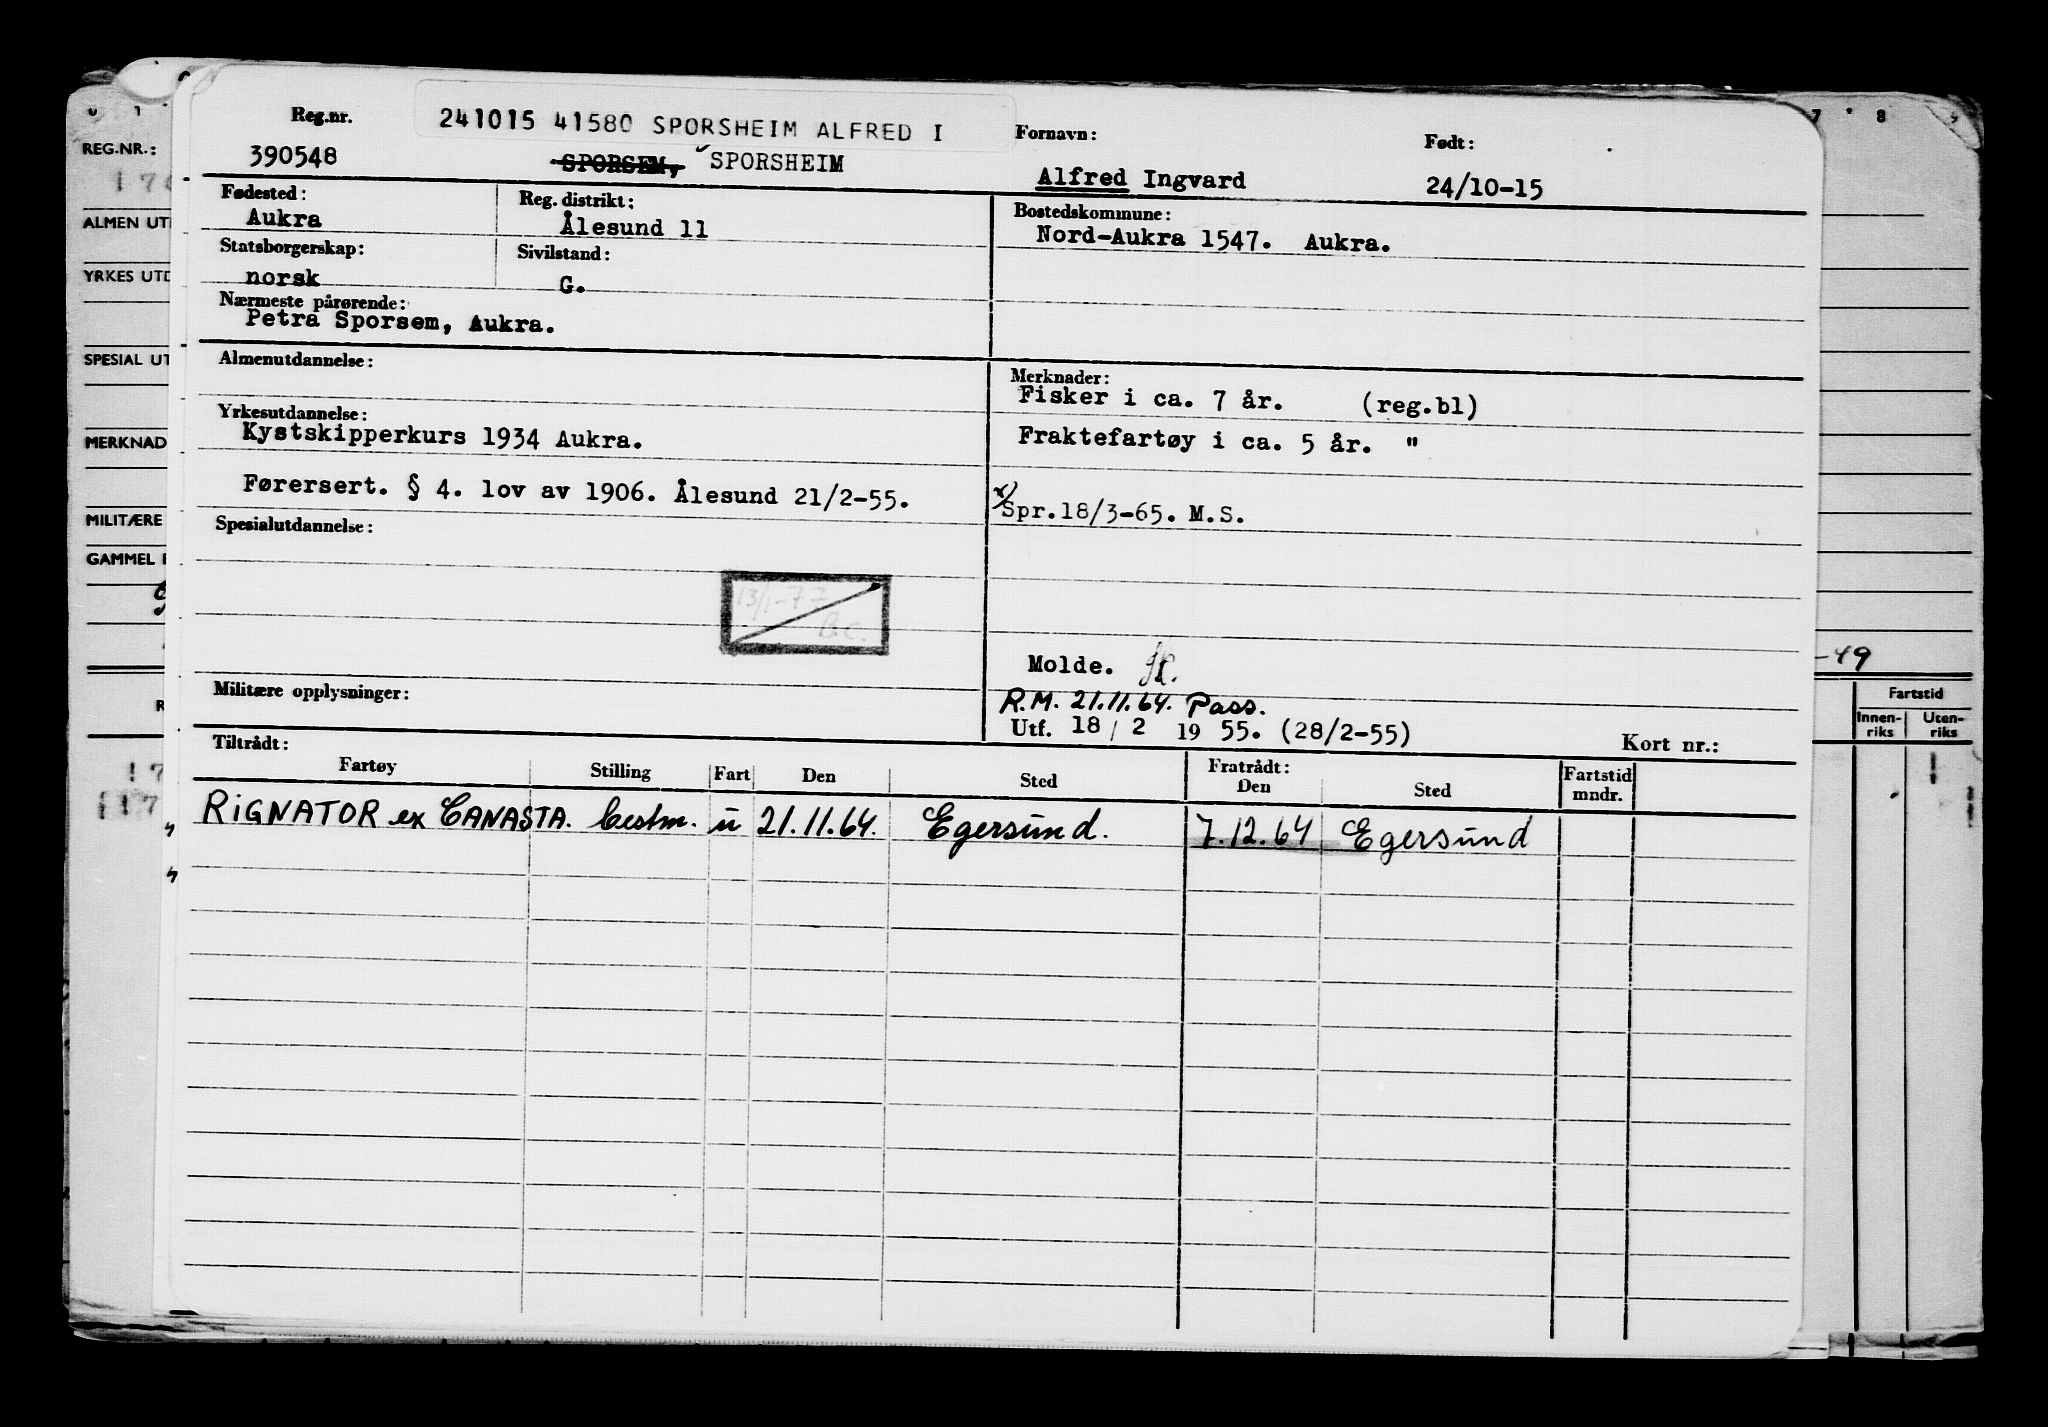 Reg.nr. 241015 41580 SPORSHEIM ALFRED I Fornavn: Født:
390548 SPORSEM, SPORSHEIM Alfred Ingvard 24/10-15
Fødested: Reg. distrikt: Bostedskommune:
Aukra Ålesund 11 Nord-Aukra 1547. Aukra.
Statsborgerskap: Sivilstand:
norsk G.
Nærmeste pårørende:
Petra Sporsem, Aukra.
Almenutdannelse: Merknader:
Fisker i ca. 7 år. (reg.bl)
Yrkesutdannelse:
Kystskipperkurs 1934 Aukra. Fraktefartøy i ca. 5 år. "
Førersert. § 4. lov av 1906. Ålesund 21/2-55. x) Spr.18/3-65. M.S.
Spesialutdannelse:
13/1-77
B.C.
Molde.
Militære opplysninger: R.M. 21.11.64. Pass.
Utf. 18 / 2 19 55. (28/2-55) Kort nr.:
Tiltrådt: Fratrådt:
Fartøy Stilling Fart Den Sted Den Sted Fartstid mndr.
RIGNATOR ex CANASTA. bestm. u 21.11.64. Egersund. 7.12.64 Egersund
REG.NR.:
ALMEN UT
YRKES UTD
SPESIAL UT
MERKNAD
MILITÆRE
GAMMEL
7 8 9
-49
Fartstid
Innen-riks Uten-riks